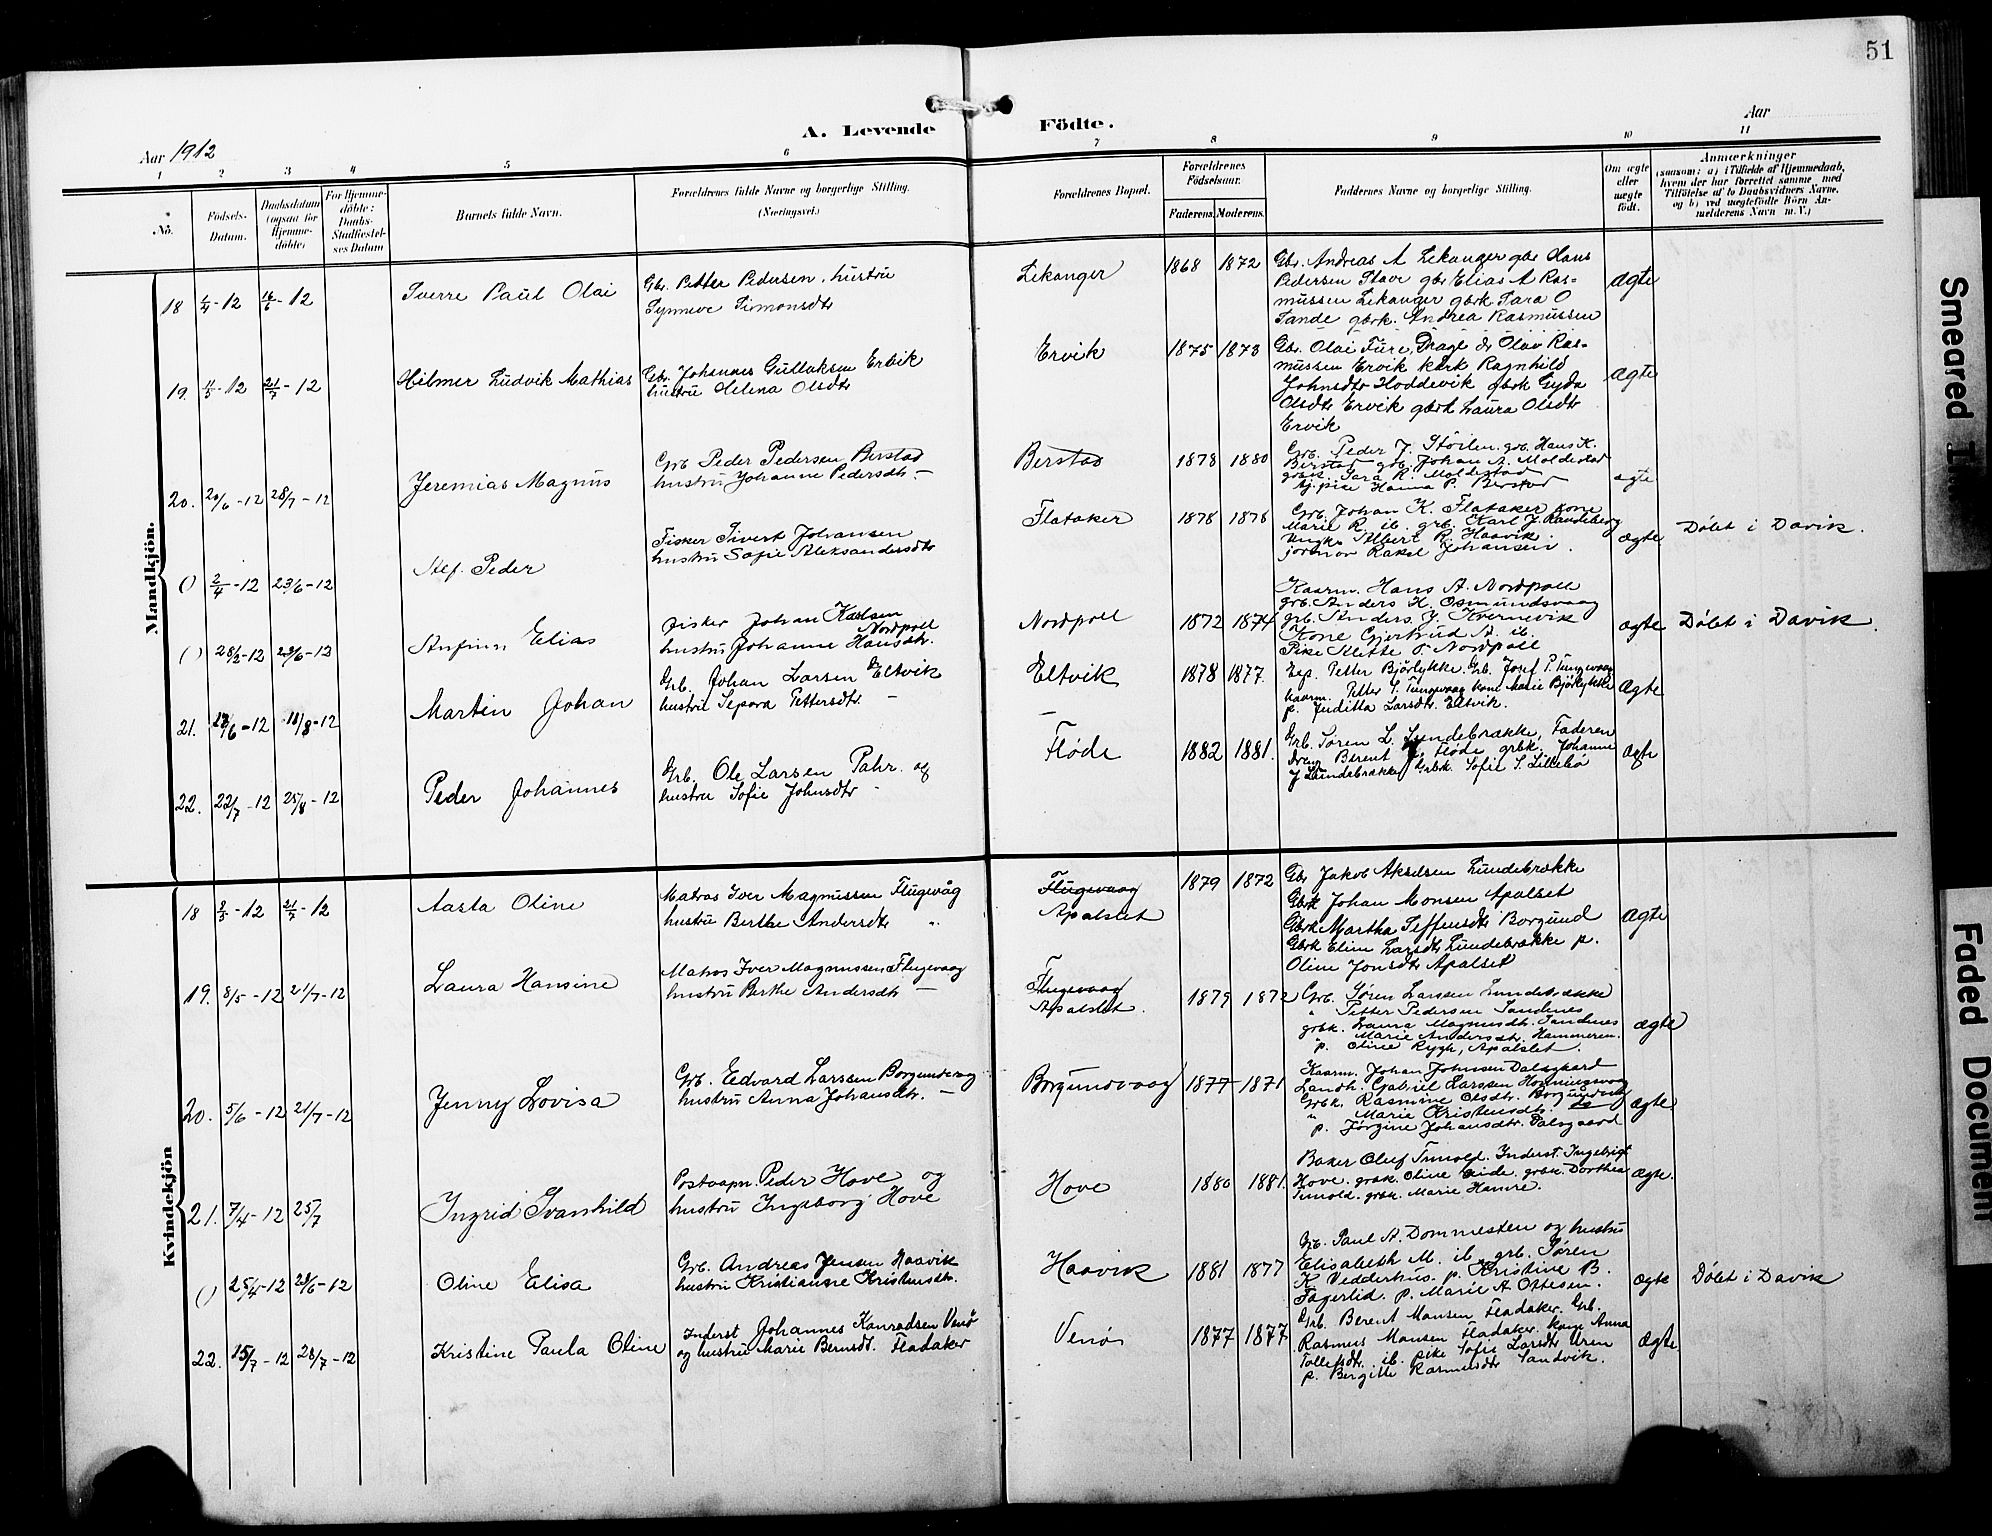 51
A. Levende Födte.
Aar 1912
Aar
1 2 3 4 5 6 7 8 9 10 11
No.
Födsels-Datum.
Daabsdatum (ogsaa for Hjemme-döbte)
For Hjemme-döbte: Daabs-Stadfæstel-ses Datum
Barnets fulde Navn.
Forældrenes fulde Navne og borgerlige Stilling.
(Næringsvei.)
Forældrenes Bopæl.
Forældrenes Födselsaar.
Faderens. Moderens.
Faddernes Navne og borgerlige Stilling.
Om ægte eller uægte födt.
Anmærkninger
(saasom: a) i Tilfælde af Hjemmedaab, hvem der har forrettet samme med Tilföielse af to Daabsvidners Navne, og b) ved uægtefödte Börn An-melderens Navn m. V.)
Mandkjön.
18 2/4-12 16/6-12 Sverre Paul Olai
Gbr. Petter Pedersen, hustru
Synneve Simonsdtr
Lekanger 1868 1872
Gbr. Andreas A Lekanger gbr Hans
Pedersen Stave gbr Elias A Ras-
mussen Lekanger gbrk. Sara O
Tande gbrk. Andrea Rasmussen
ægte
19. 11/5-12 21/7-12 Hilmer Ludvik Mathias
Gbr. Johannes Gullaksen Ervik
hustru Helena Olsdtr
Ervik 1875 1873
Gbr. Olai Fure, Drage Olav Ras-
mussen Ervik Ragnhild
Johnsdtr Hoddevik gbrk Gyda
Olsdtr Ervik gbrk Laura Olsdtr
Ervik
ægte
20. 20/6-12 28/7-12 Jeremias Magnus
Grb Peder Pedersen Berstad
hustru Johanne Pedersdtr. —
Berstad 1878 1880
Grb. Peder J. Støilen. grb. Hans K.
Berstad grb. Johan A. Moldestad
grbk. Sara R. Moldestad
pike Hanna P. Berstad
ægte
() 2/4-12 23/6-12 Peder
Fisker Sivert Johansen
hustru Sofie Aleksandersdtr
Flataker 1878 1878
Grb. Johan K. Flataker kone
Marie R. ib. grb. Karl J. Randeberg
Albert R. Haavik
jormor Rakel Johansen.
ægte Døbt i Davik.
() 28/3-12 23/6-12 Anfinn Elias
Fisker Johan Karlsen
Nordpoll
hustru Johanne Hansdtr.
Nordpoll 1872 1874
Kaarm. Hans A. Nordpoll
grb. Anders K. Osmundsvaag
grb. Anders. J. Kvernevik
Kone Gjertrud A. ib.
Pike Nordpoll
ægte Døbt i Davik.
21. /6-12 /8-12 Martin Johan
Grb. Johan Larsen Eltvik
hustru Sepora Pettersdtr. —
Eltvik 1878 1877.
Exp. Petter Bjørlykke. Grb. Josef P. Tungevaag
Kaarm. Petter S. Tungevaag kone Marie Bjørlykke
p. Juditta Larsdtr. Eltvik.
Ægte
22. 22/7-12 25/8-12 Peder Johannes
Grb. Ole Larsen Pahr. og
hustru Sofie Johnsdtr —
Fløde 1882 1881.
Grb. Søren L. Lundebrække, Faderen
Dreng Berent Fløde grbk. Johanne
J Lundebrække Grbk. Sofie S. Lillebø
Ægte
Kvindekjön
18 2/5-12 21/7-12 Aasta Oline
Matros Iver Magnussen Flugevåg
hustru Berthe Andersdtr "
Flugevaag
Apalset 1879 1872
Gbr Jakob Akselsen Lundebrække
Gbrk Johan Monsen Apalset
Gbrk Martha Steffensdtr Borgund
Gbrk Elim Larsdtr Lundebrække p.
Oline Jonsdtr Apalset
ægte
19. 8/5-12 21/7-12 Laura Hansine
Matros Iver Magnussen Flugevaag
hustru Berthe Andersdtr —
Flugevaag
Apalslet. 1879 1872
Grb. Søren Larssen Lundebrække
" Petter Pedersen Sandenes
grbk. Laura Magnusdtr. Sandenes
" Marie Andersdtr. Hammeren.
p. Oline Rygh, Apalslet.
ægte
20. 5/6-12 21/7-12 Jenny Lovisa
Grb. Edvard Larssen Borgundvaag
hustru Anna Johansdtr. —
Borgundvaag 1877 1871
Kaarm. Johan Johnsen Dalsgaard
Landh. Gabriel Larssen Honningsvaag
Grbk. Rasmine Olsdtr. Borgundvaag
" Marie Kristensdtr. do
p. Jørgine Johansdtr. Dalsgaard
ægte
21. 7/4-12 25/7 Ingrid Svanhild
Postaapn. Peder Hove og
hustru Ingeborg Hove
Hove 1880 1881.
Baker Oluf Tunold. Inderst Ingebrigt
Hove. grbk. Oline Eide. grbk. Dorthea
Tunold. grbk. Marie Hamre.
ægte.
() 25/4-12 23/6-12 Oline Elisa
Grb. Andreas Jensen Haavik
hustru Kristianne Kristensdtr.
Haavik 1881 1877
Grb. Paul A. Dommesten og hustru
Elisabeth M. ib. grb. Søren
K Vedderhus. p. Kristine B.
Fagerlid. p. Marie A Ottesen.
ægte Døbt i Davik
22. 15/7-12 28/7-12 Kristine Paula Oline
Inderst Johannes Konradsen Venø
og hustru Marie Berntsdt. Fladaker
Venø 1877 1877
Grb. Berent Monsen Fladaker. Grb.
Rasmus Monsen Fladaker. kone Anna
Tollefsdtr. ib. pike Sofie Larsdtr Uren
p. Bergitte Rasmusdtr Sandvik.
Ægte
Smeared
Faded Document